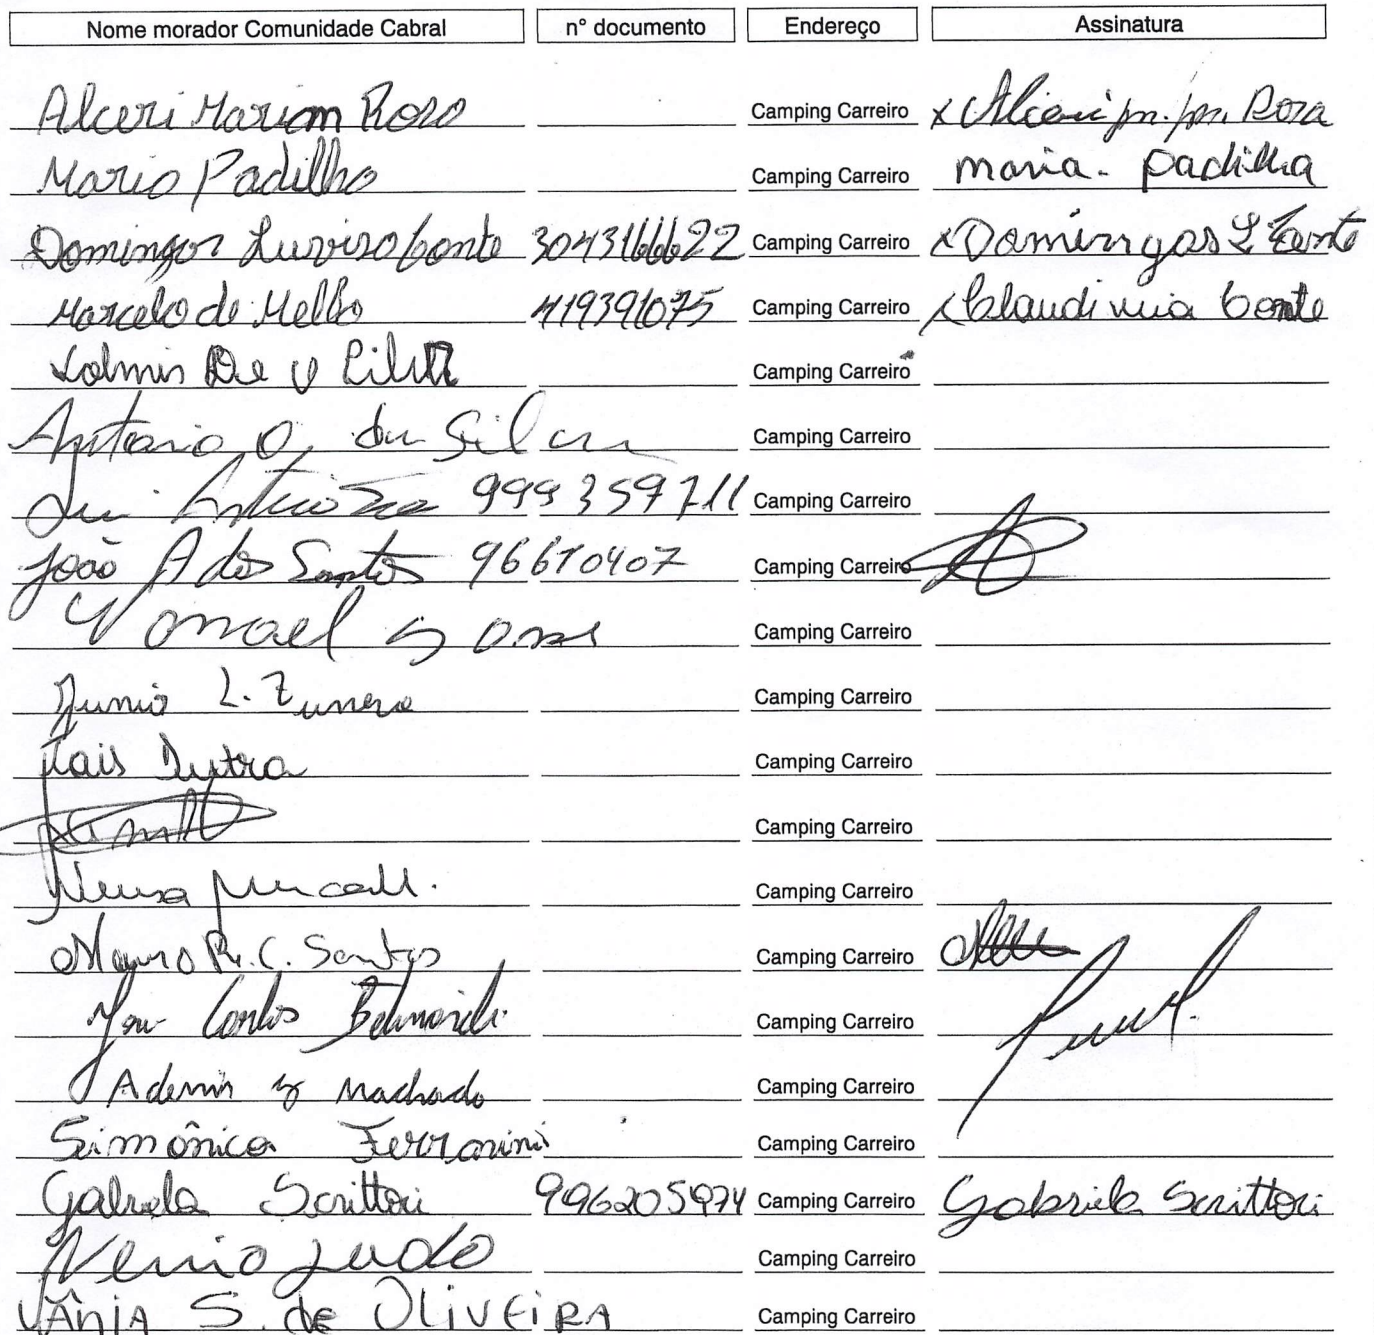 Nome morador Comunidade Cabral n° documento Endereço Assinatura
Alceri Mariam Rosa Camping Carreiro x Alceri m. m. Rosa
Maria Padilha Camping Carreiro maria - Padilha
Domingos Conte 3043166622 Camping Carreiro x Domingas L Conte
Marcelo de Mello 419391075 Camping Carreiro x Claudi Conte
De Camping Carreiro
Antonio O. da Silva Camping Carreiro
999359711 Camping Carreiro
João A dos Santos 96610407 Camping Carreiro
Camping Carreiro
Junio L. Camping Carreiro
Lais Dutra Camping Carreiro
Camping Carreiro
Neusa Camping Carreiro
Mauro R. C. Santos Camping Carreiro
Carlos Camping Carreiro
Ademir Machado Camping Carreiro
Simônica Ferrarini Camping Carreiro
Gabriela Scrittori 996205974 Camping Carreiro Gabriela Scrittori
Camping Carreiro
VÂNIA S. de OLIVEiRA Camping Carreiro